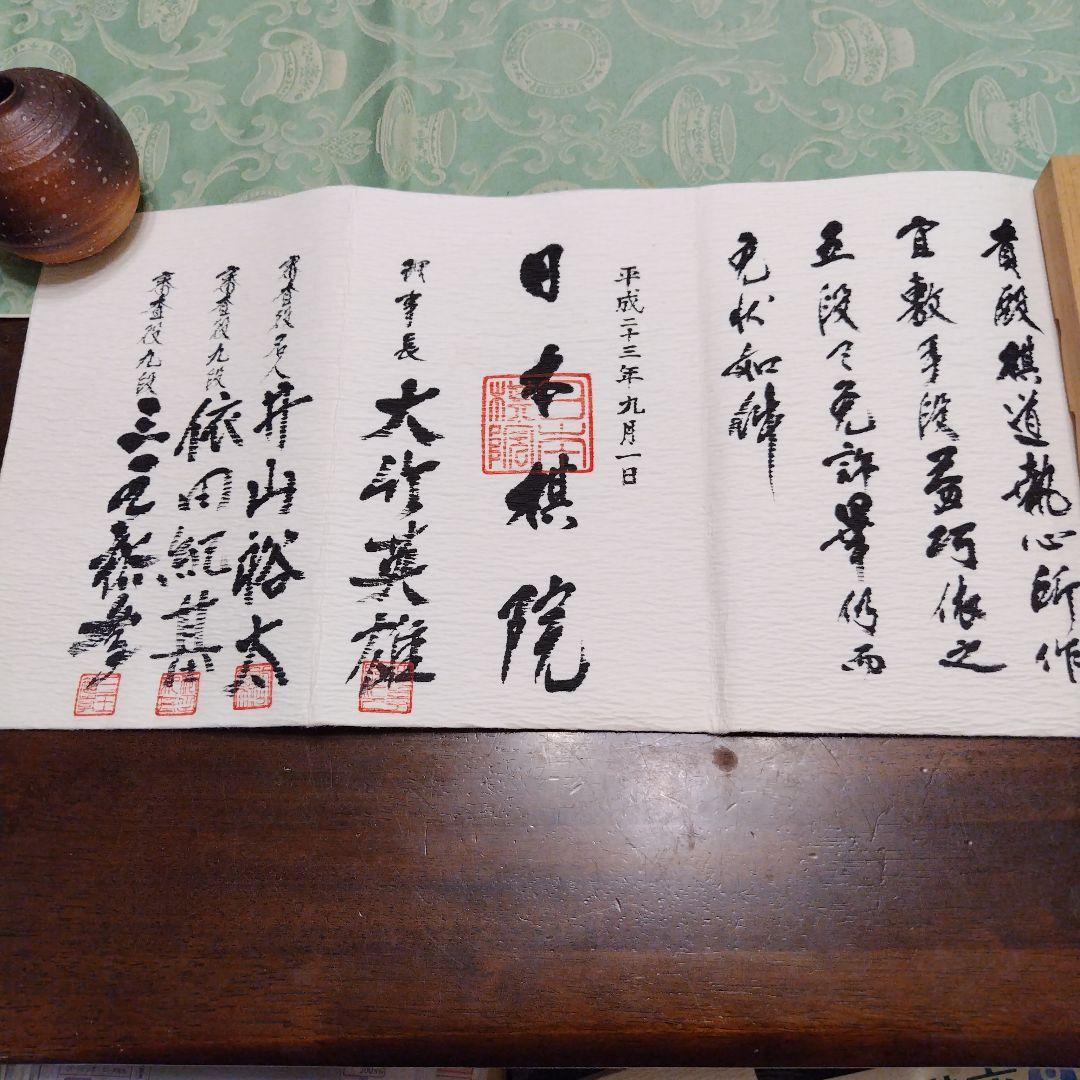 貴殿棋道執心所作
宜敷手段益巧依之
五段令免許畢仍而
免状如件
平成二十三年九月一日
日本棋院
理事長 大竹英雄
審査役名人 井山裕太
審査役九段 依田紀基
審査役九段 三王裕孝
日本棋院